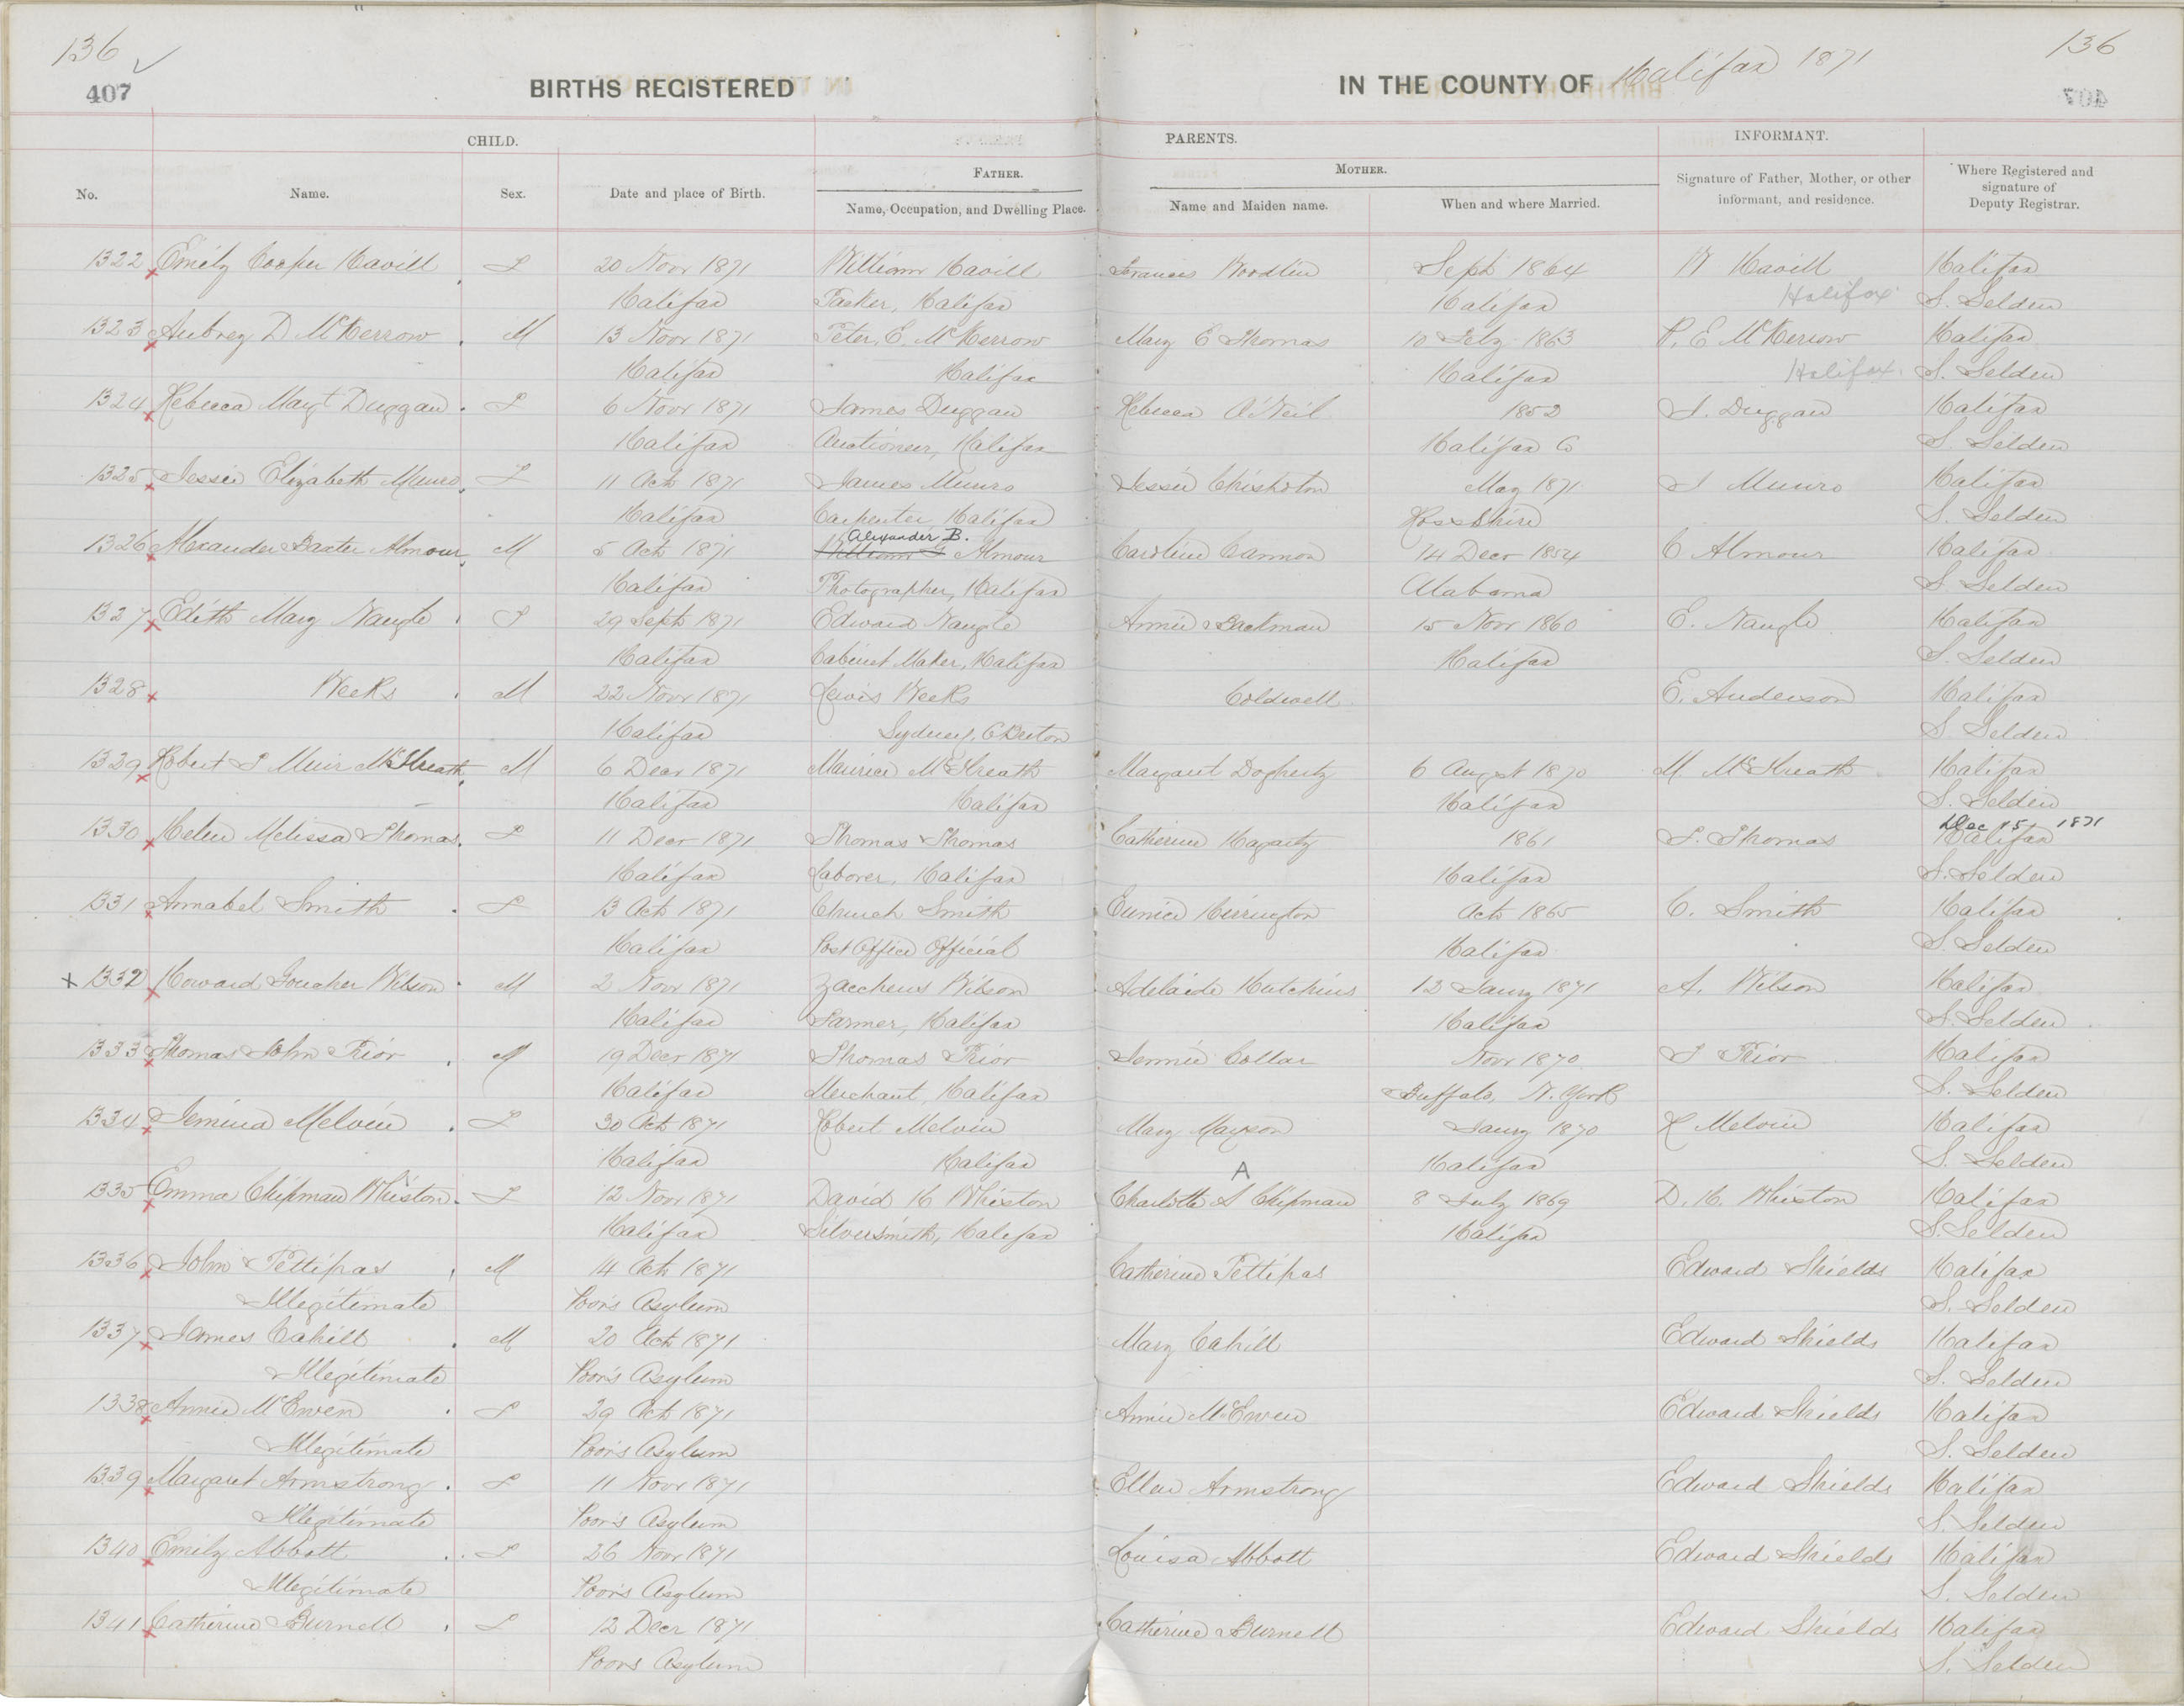 136 ✓ 136
407
BIRTHS REGISTERED IN THE COUNTY OF Halifax 1871
CHILD. PARENTS. INFORMANT.
FATHER. MOTHER.
No. Name. Sex. Date and place of Birth. Name, Occupation, and Dwelling Place. Name and Maiden name. When and where Married. Signature of Father, Mother, or other informant, and residence. Where Registered and signature of Deputy Registrar.
1322 Emily Cooper Havill F 20 Novr 1871 William Havill Frances Woodlin Sept 1864 W Havill Halifax
Halifax Packer, Halifax Halifax Halifax S. Selden
1323 Aubrey D McKerrow M 13 Novr 1871 Peter E. McKerrow Mary E Thomas 10 Feby 1863 P. E McKerrow Halifax
Halifax Halifax Halifax Halifax S. Selden
1324 Rebecca Margt Duggan F 6 Novr 1871 James Duggan Rebecca O'Neil 1852 J. Duggan Halifax
Halifax Auctioneer, Halifax Halifax Co S. Selden
1325 Jessie Elizabeth Munro F 11 Oct 1871 James Munro Jessie Chisholm May 1871 J Munro Halifax
Halifax Carpenter, Halifax Ross Shire S. Selden
Alexander B.
1326 Alexander Baxter Almour M 5 Oct 1871 William Almour Caroline Cannon 14 Decr 1854 C Almour Halifax
Halifax Photographer, Halifax Alabama S Selden
1327 Edith Mary Naugle F 29 Sept 1871 Edward Naugle Annie Backman 15 Novr 1860 E. Naugle Halifax
Halifax Cabinet Maker, Halifax Halifax S. Selden
1328 Weeks M 22 Novr 1871 Lewis Weeks Coldwell E. Anderson Halifax
Halifax Sydney, C Breton S. Selden
1329 Robert J Muir McIlreath M 6 Decr 1871 Maurice McIlreath Margaret Dogherty 6 August 1870 M. McIlreath Halifax
Halifax Halifax Halifax S. Selden
Dec 15, 1871
1330 Helen Melissa Thomas F 11 Decr 1871 Thomas Thomas Catherine Hagarty 1861 T. Thomas Halifax
Halifax Laborer, Halifax Halifax S. Selden
1331 Annabel Smith F 13 Oct 1871 Church Smith Eunice Herrington Oct 1865 C. Smith Halifax
Halifax Post Office Official Halifax S. Selden
x 1332 Howard Goucher Wilson M 2 Novr 1871 Zaccheus Wilson Adelaide Hutchins 12 Jany 1871 A. Wilson Halifax
Halifax Farmer, Halifax Halifax S. Selden
1333 Thomas John Prior M 19 Decr 1871 Thomas Prior Jennie Collar Novr 1870 T Prior Halifax
Halifax Merchant, Halifax Buffalo, N. York S. Selden
1334 Jemima Melvin F 30 Oct 1871 Robert Melvin Mary Maxson Jany 1870 R Melvin Halifax
Halifax Halifax Halifax S. Selden
A
1335 Emma Chipman Whiston F 12 Novr 1871 David H Whiston Charlotte S Chipman 8 July 1869 D. H. Whiston Halifax
Halifax Silversmith, Halifax Halifax S. Selden
1336 John Pettipas M 14 Oct 1871 Catherine Pettipas Edward Shields Halifax
Illegitimate Poor's Asylum S. Selden
1337 James Cahill M 20 Oct 1871 Mary Cahill Edward Shields Halifax
Illegitimate Poor's Asylum S. Selden
1338 Annie McEwen F 29 Oct 1871 Annie McEwen Edward Shields Halifax
Illegitimate Poor's Asylum S. Selden
1339 Margaret Armstrong F 11 Novr 1871 Ellen Armstrong Edward Shields Halifax
Illegitimate Poor's Asylum S. Selden
1340 Emily Abbott F 26 Novr 1871 Louisa Abbott Edward Shields Halifax
Illegitimate Poor's Asylum S. Selden
1341 Catherine Burnell F 12 Decr 1871 Catherine Burnell Edward Shields Halifax
Poors Asylum S. Selden